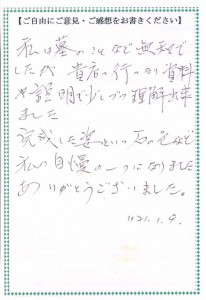 【ご自由にご意見・ご感想をお書きください】
私は墓のことなど無知で
したが 貴店の行ったり資料
や説明で少しづつ理解出来
ました
完成した姿といい石の色など
私の自慢の一つになりました
ありがとうございました。
H21.1.9.